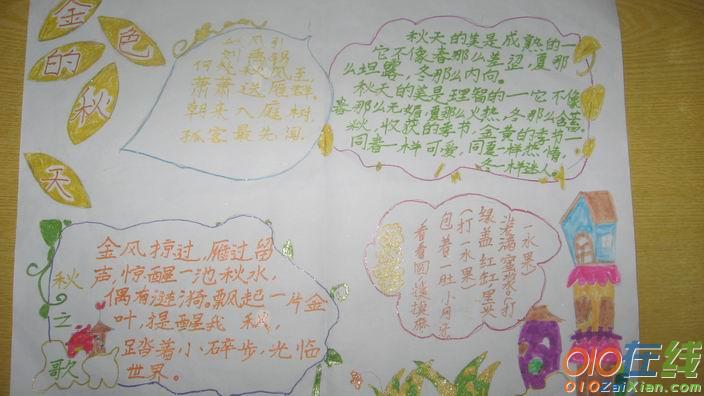 金色
的秋
天
秋风引
刘禹锡
何处秋风至,
萧萧送雁群。
朝来入庭树,
孤客最先闻。
秋天的美是成熟的一
它不像春那么羞涩,夏那
么坦露,冬那么内向。
秋天的美是理智的一它不像
春那么妩媚,夏那么火热,冬那么含蓄。
秋,收获的季节,金黄的季节一
同春一样可爱,同夏一样热情,
冬一样迷人。
秋之歌
金风掠过,雁过留
声,惊醒一池秋水,
偶有涟漪。飘起一片金
叶,提醒我 秋,
踏着小碎步,光临
世界。
一水果)
装满蜜浆(打
绿盖红缸黑
(打一水果)
包着一肚小月牙
010在线
010ZaiXian.com